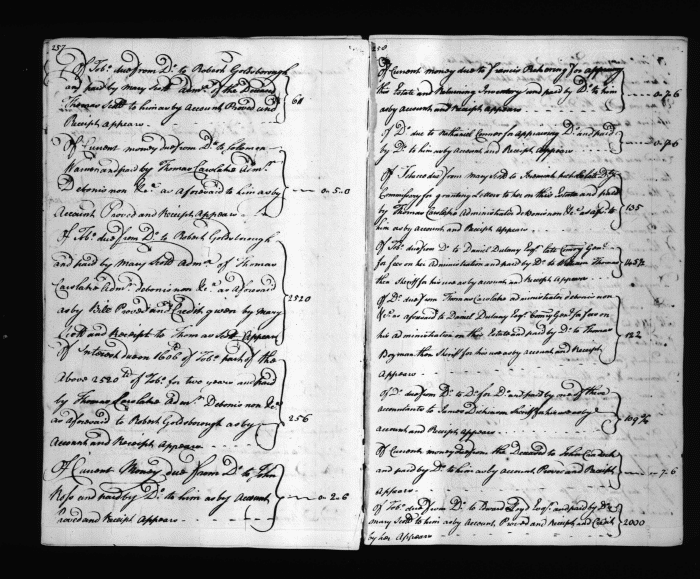 257
Of Tobo. due from Do. to Robert Goldsborough
and paid by Mary Scott Admx. of the Deceased
Thomas Scott to him as by Account Proved and
Receipt appears 60
Of Current money due from Do. to Solomon
Warner and paid by Thomas Carslake Admr.
Debonis non &c. as aforesaid to him as by
Account Proved and Receipt Appears 0..5..0
Of Tobo. due from Do. to Robert Goldsborough
and paid by Mary Scott Admx. of Thomas
Carslake Admr. Debonis non &c. as Aforesaid
as by Bill Proved and Credit given by Mary
Scott and Receipt to Thomas Scott Appears
2520
Of Interest due on 1606 lb of Tobo. part of the
Above 2520 lb of Tobo. for two years and paid
by Thomas Carslake Admr. Debonis non &c.
as aforesaid to Robert Goldsborough as by
Account and Receipt Appears
256
Of Current Money due from Do. to John
Ross and paid by Do. to him as by Account
Proved and Receipt Appears 0..2..6
258
Of Current money due to Francis Pickering for appraising
this Estate and Returning Inventory and paid by Do. to him
as by Account and Receipt appears 0..7..6
Of Do. due to Nathaniel Connor for appraising Do. and paid
by Do. to him as by Account and Receipt Appears 0..7..6
Of Tobo. due from Mary Scott to Jeremiah Dty.
Commissary for granting Letters to her on this Estate and paid
by Thomas Carslake Administrator Debonis non &c. as afd. to
him as by account and Receipt Appears
135
Of Tobo. due from Do. to Daniel Dulany Esqr. late Comry. Genl.
for fees on her Administration and paid by Do. to William Thomas
then Sheriff for his use as by account and Receipt Appears
Of Do. due from Thomas Carslake administrator debonis non
&c. as aforesaid to Daniel Dulany Esqr. Comry. Genl. for fees on
his Administration on this Estate and paid by Do. to Thomas
Bozman then Sheriff for his use as by account and Receipt
Appears
122
Of Do. due from Do. to Do. for Do. and paid by one of these
accountants to Sheriff for his use as by
account and Receipt Appears
Of Current money due from the Deceased to John
and paid by Do. to him as by account Proved and Receipt
Appears
7..6
Of Tobo. due from Do. to Edward Lloyd Esqr. and paid by Do. &
Mary Scott to him as by Account Proved and Receipt and Credit
by her Appears
2000